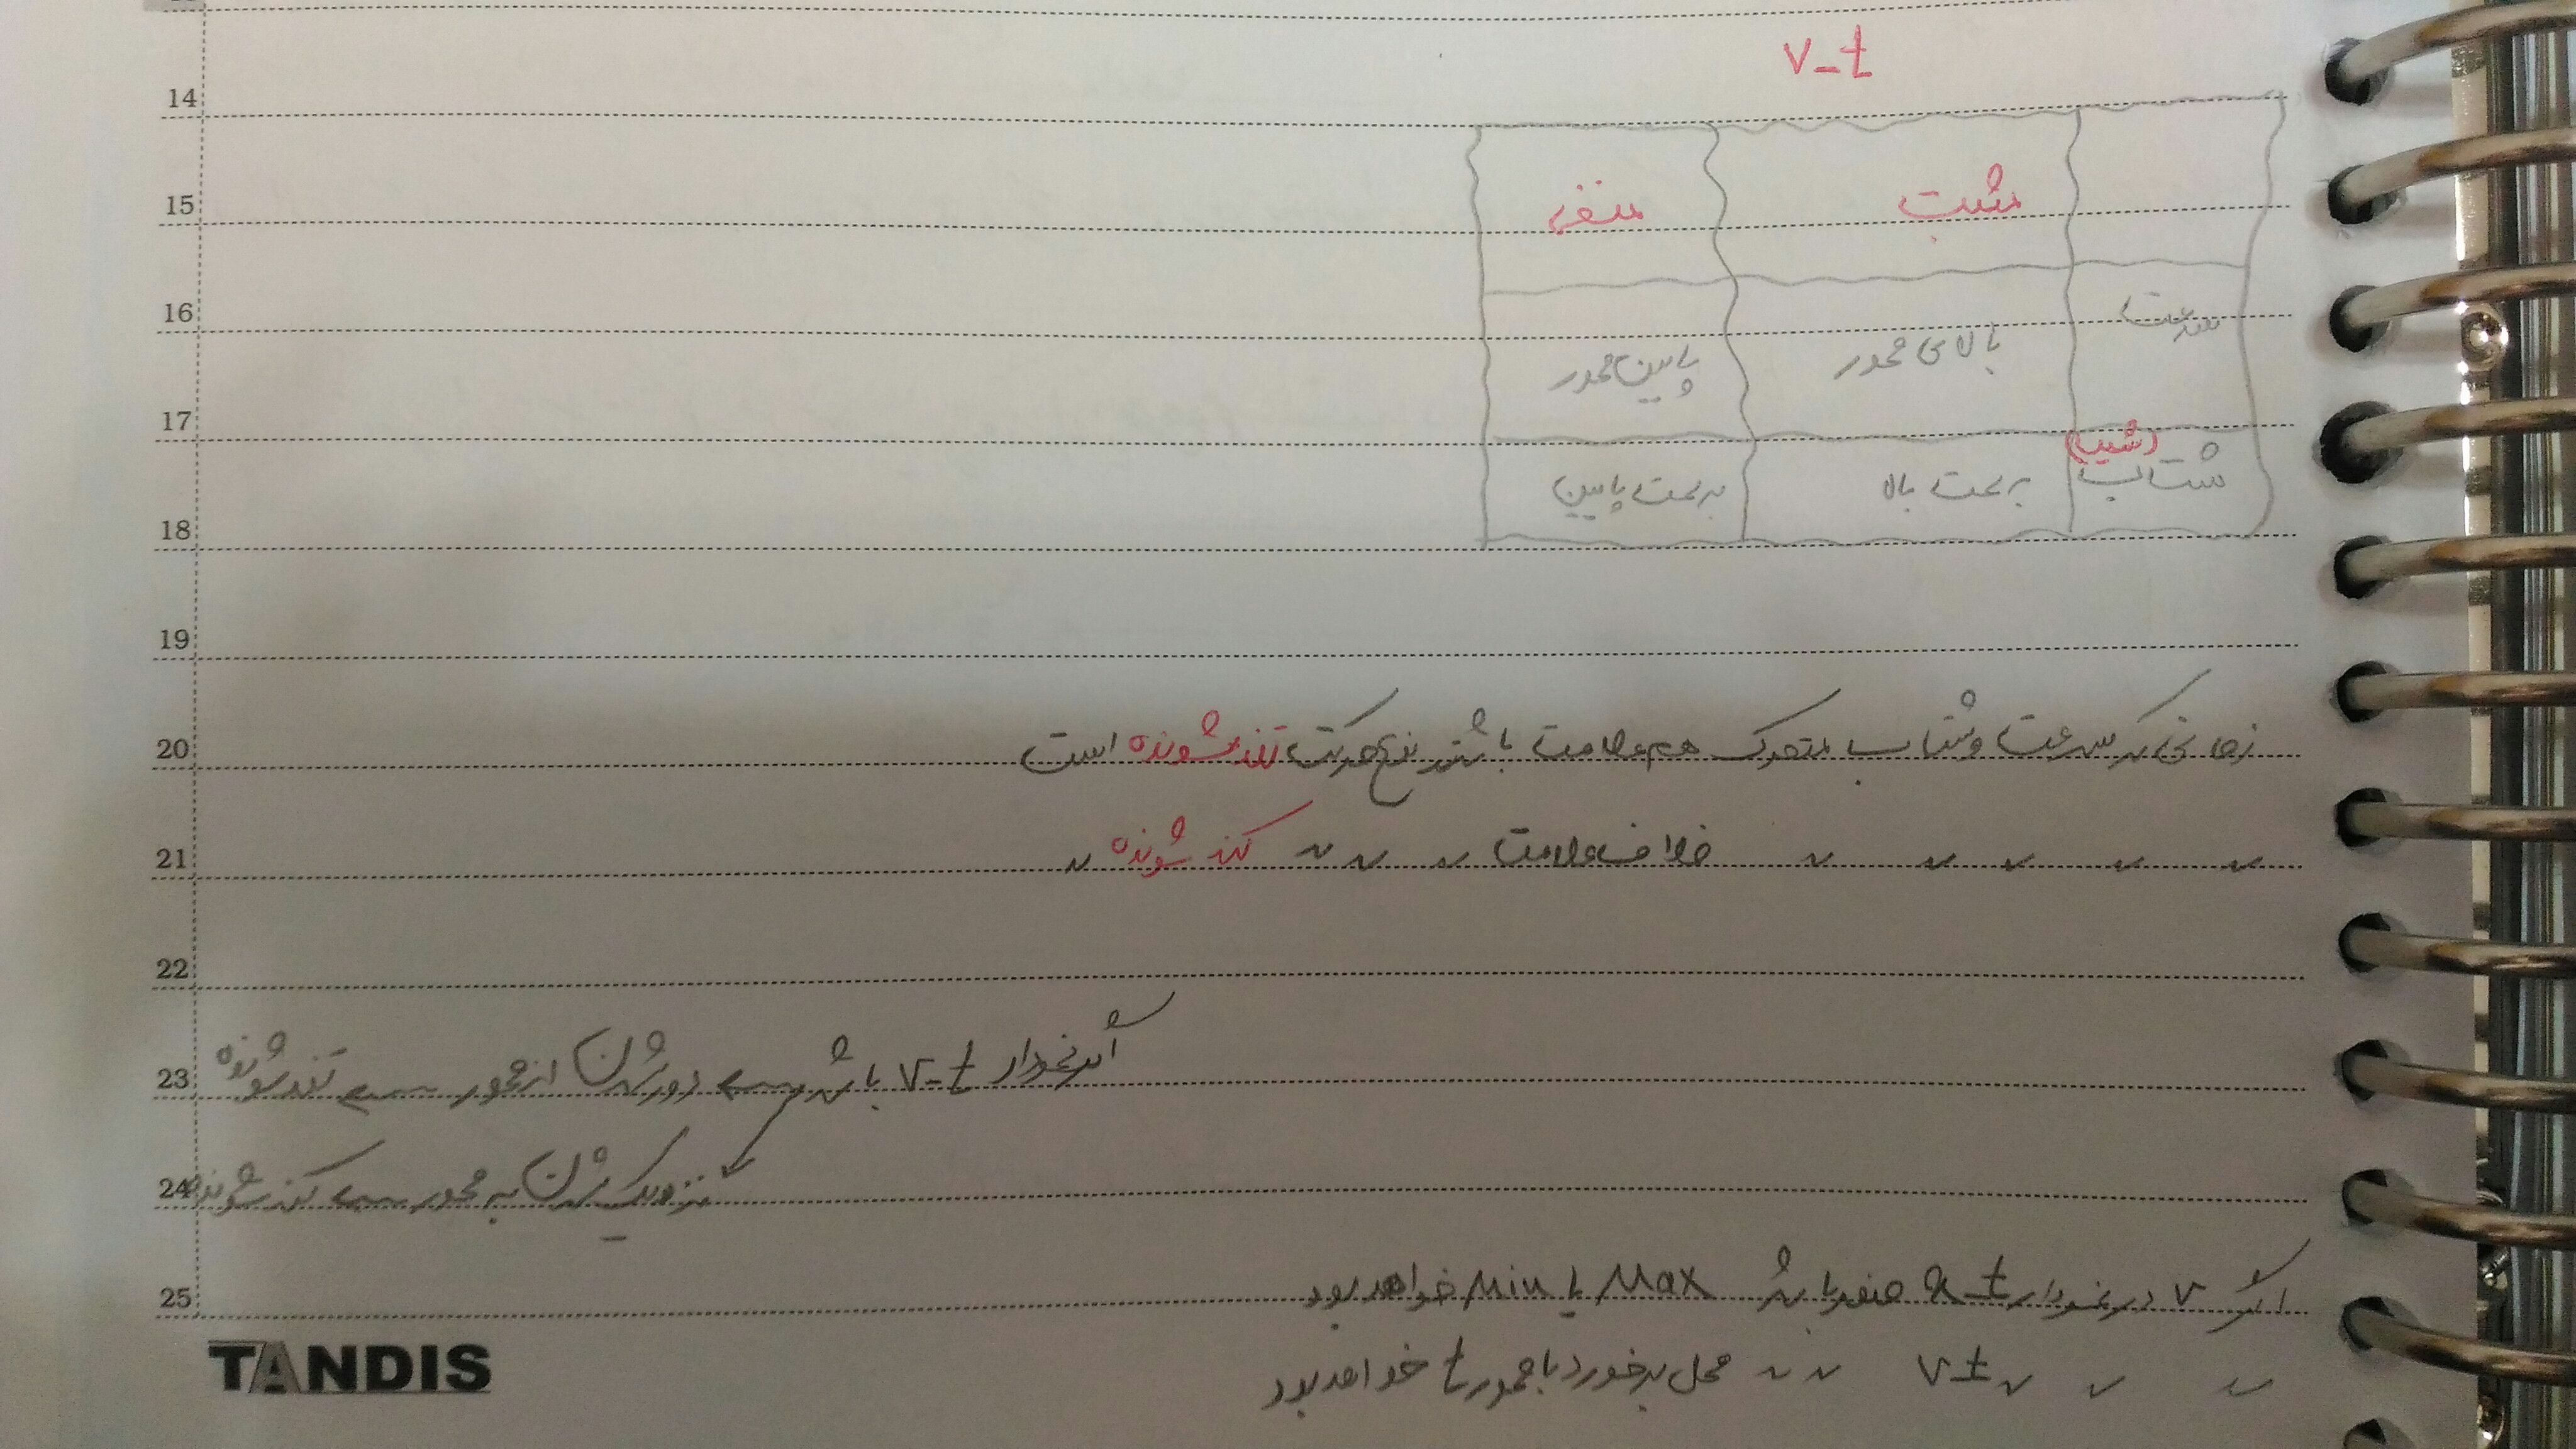 v-t
14
مثبت منفی
15
سرعت بالای محور پایین محور
16
17
شتاب (شیب) به سمت بالا به سمت پایین
18
19
زمانی که سرعت و شتاب متحرک هم علامت باشند نوع حرکت تند شونده است
20
〃 〃 〃 〃 〃 خلاف علامت 〃 〃 〃 کند شونده 〃
21
22
اگر نمودار v-t باشد → دور شدن از محور → تند شونده
23
نزدیک شدن به محور → کند شونده
24
اگر v در نمودار x-t صفر باشد Max یا Min خواهد بود
25
〃 〃 〃 v-t 〃 〃 محل برخورد با محور t خواهد بود
TANDIS